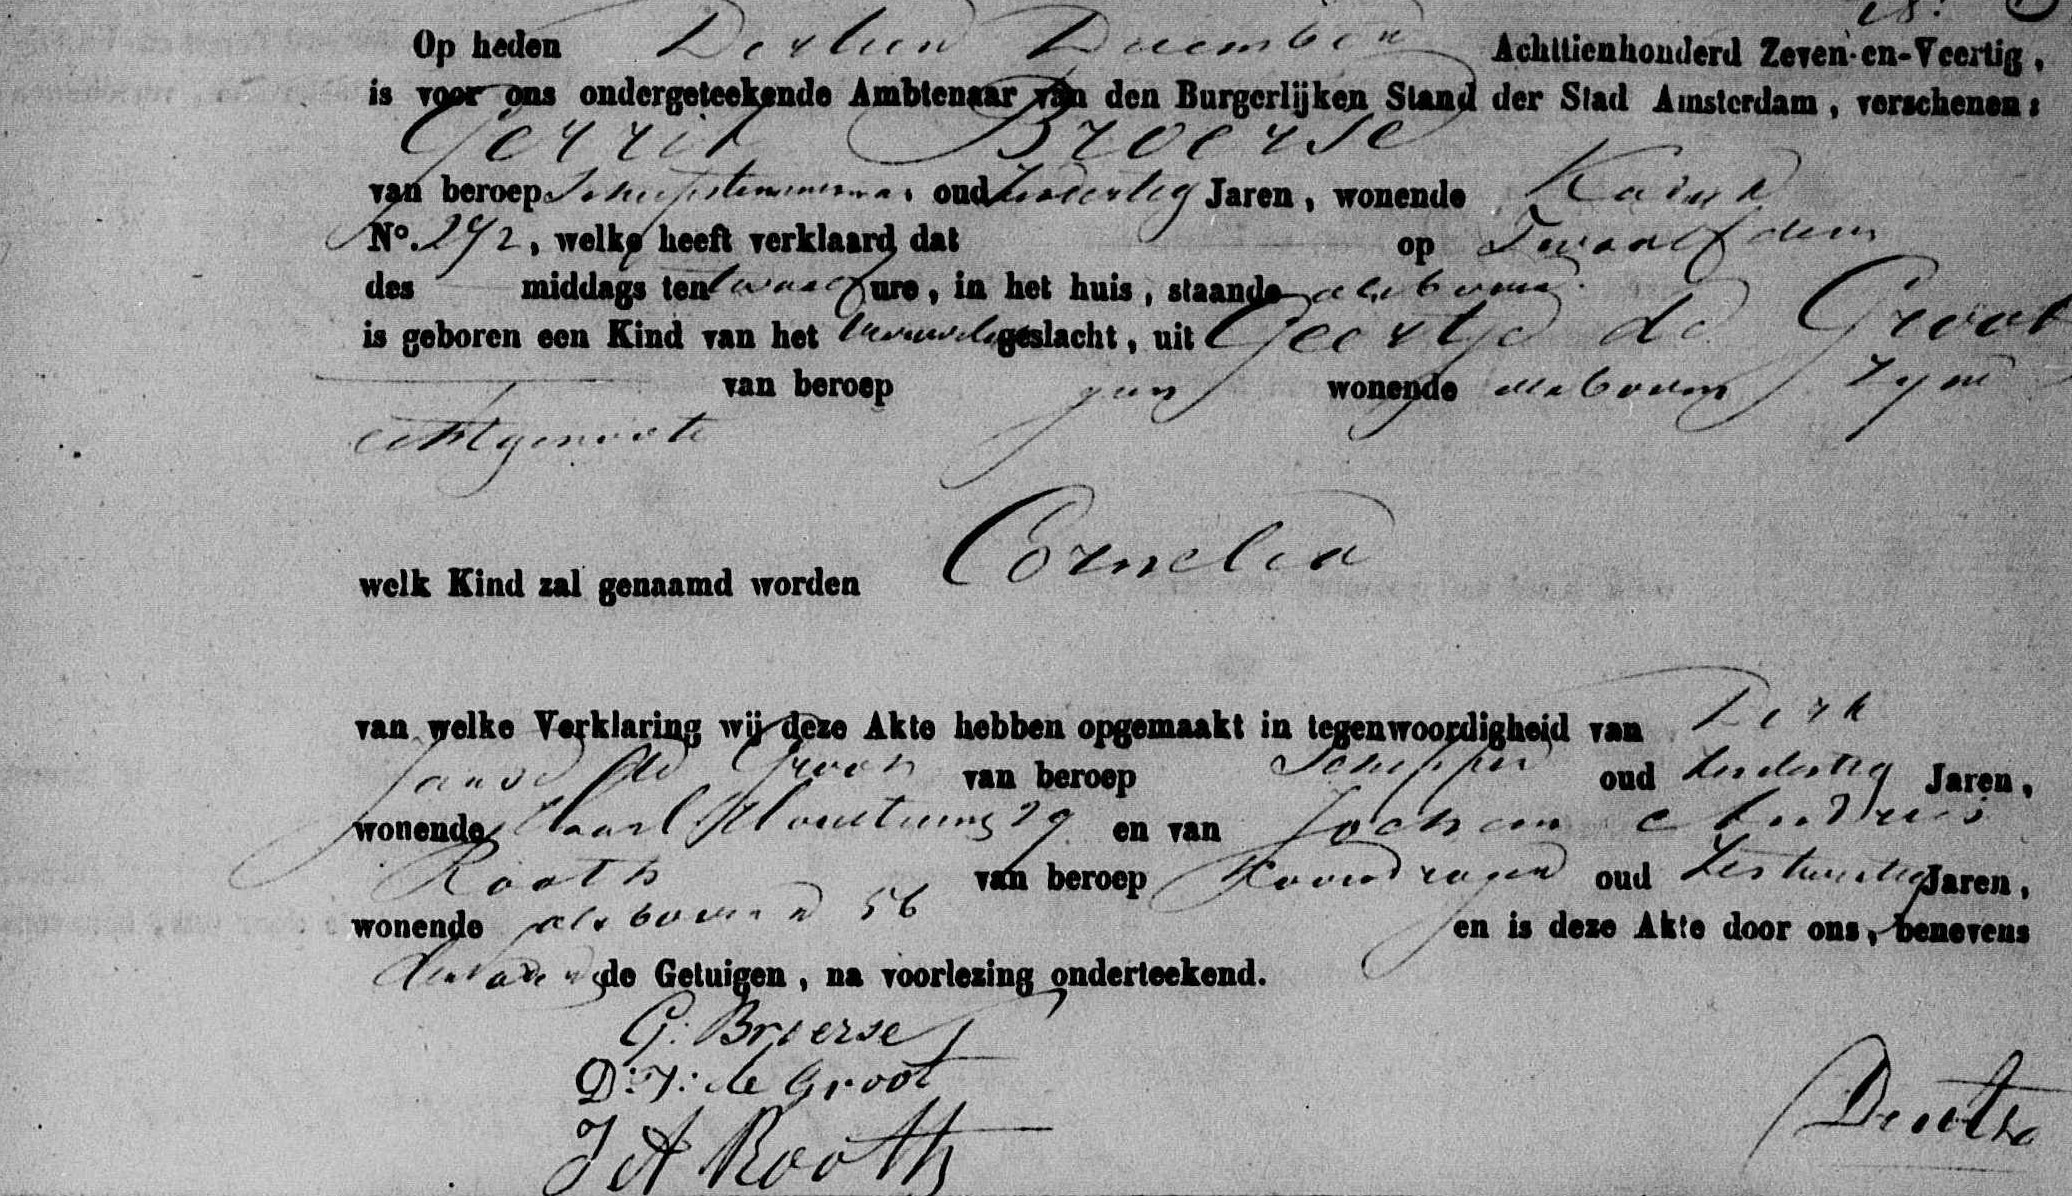 Op heden Dertien December Achttienhonderd Zeven-en-Veertig,
is voor ons ondergeteekende Ambtenaar van den Burgerlijken Stand der Stad Amsterdam, verschenen:
Gerrit Broerse
van beroep Scheepstimmerman, oud Jaren, wonende Kattenb
No. 292, welke heeft verklaard dat op Twaalf dezer
des middags ten twaalf ure, in het huis, staande als boven
is geboren een Kind van het Vrouwelijk geslacht, uit Geertje de Groot
van beroep geen wonende als boven zijne
echtgenoote
welk Kind zal genaamd worden Cornelia
van welke Verklaring wij deze Akte hebben opgemaakt in tegenwoordigheid van Dirk
Janse de Groot van beroep Schipper oud Jaren,
wonende Haarl Houttuinen 29 en van Jochem Andries
Rooth van beroep Koorndrager oud Jaren,
wonende als boven 56 en is deze Akte door ons, benevens
den vader en de Getuigen, na voorlezing onderteekend.
G: Broerse
D: J: de Groot
J A Rooth